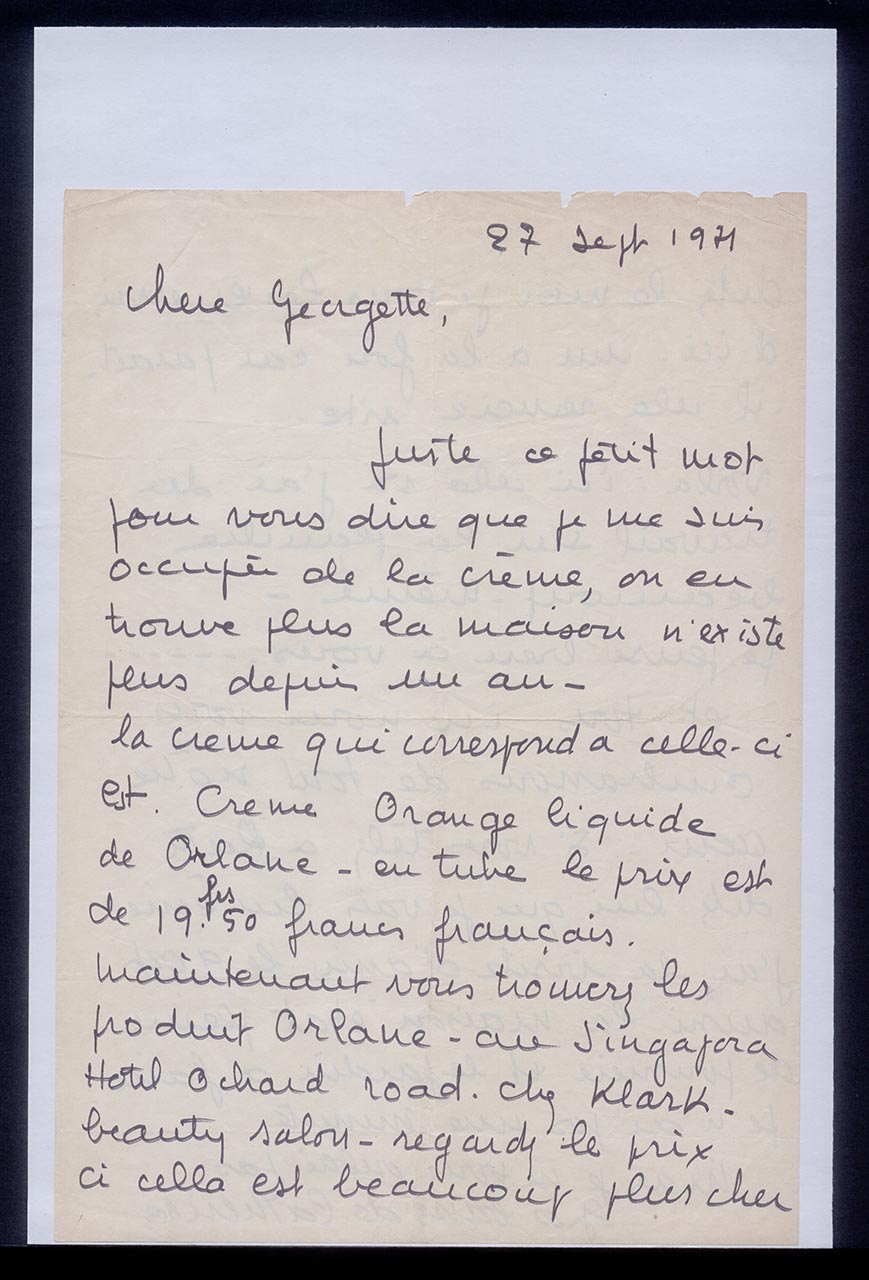 27 Sept 1971
Chere Georgette,
Juste ce petit mot
pour vous dire que je me suis
occupée de la crème, on en
trouve plus la maison n'existe
plus depuis un an -
la creme qui correspond a celle-ci
est. Creme Orange liquide
de Orlane - en tube le prix est
de 19.frs 50 francs français.
maintenant vous trouverez les
produit Orlane - au Singapora
Hotel Ochard road. chez Klark -
beauty salon - regardez le prix
ci cella est beaucoup plus cher